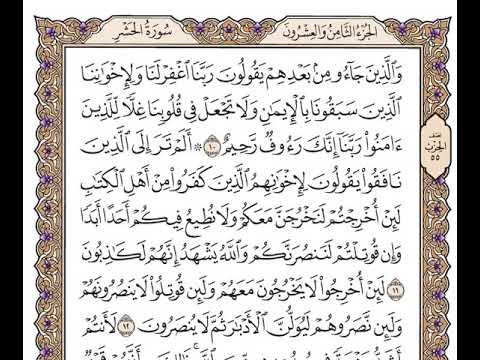 سُورَةُ الحَشْرِ
الجُزْءُ الثَّامِنُ وَالعِشْرُونَ
وَالَّذِينَ جَآءُو مِنۢ بَعْدِهِمْ يَقُولُونَ رَبَّنَا ٱغْفِرْ لَنَا وَلِإِخْوَٰنِنَا
ٱلَّذِينَ سَبَقُونَا بِٱلْإِيمَٰنِ وَلَا تَجْعَلْ فِى قُلُوبِنَا غِلًّا لِّلَّذِينَ
ءَامَنُوا۟ رَبَّنَآ إِنَّكَ رَءُوفٌ رَّحِيمٌ ١٠ ۞ أَلَمْ تَرَ إِلَى ٱلَّذِينَ
نَافَقُوا۟ يَقُولُونَ لِإِخْوَٰنِهِمُ ٱلَّذِينَ كَفَرُوا۟ مِنْ أَهْلِ ٱلْكِتَٰبِ
لَئِنْ أُخْرِجْتُمْ لَنَخْرُجَنَّ مَعَكُمْ وَلَا نُطِيعُ فِيكُمْ أَحَدًا أَبَدًا
وَإِن قُوتِلْتُمْ لَنَنصُرَنَّكُمْ وَٱللَّهُ يَشْهَدُ إِنَّهُمْ لَكَٰذِبُونَ
١١ لَئِنْ أُخْرِجُوا۟ لَا يَخْرُجُونَ مَعَهُمْ وَلَئِن قُوتِلُوا۟ لَا يَنصُرُونَهُمْ
وَلَئِن نَّصَرُوهُمْ لَيُوَلُّنَّ ٱلْأَدْبَٰرَ ثُمَّ لَا يُنصَرُونَ ١٢ لَأَنتُمْ
نصف
الحزب
٥٥